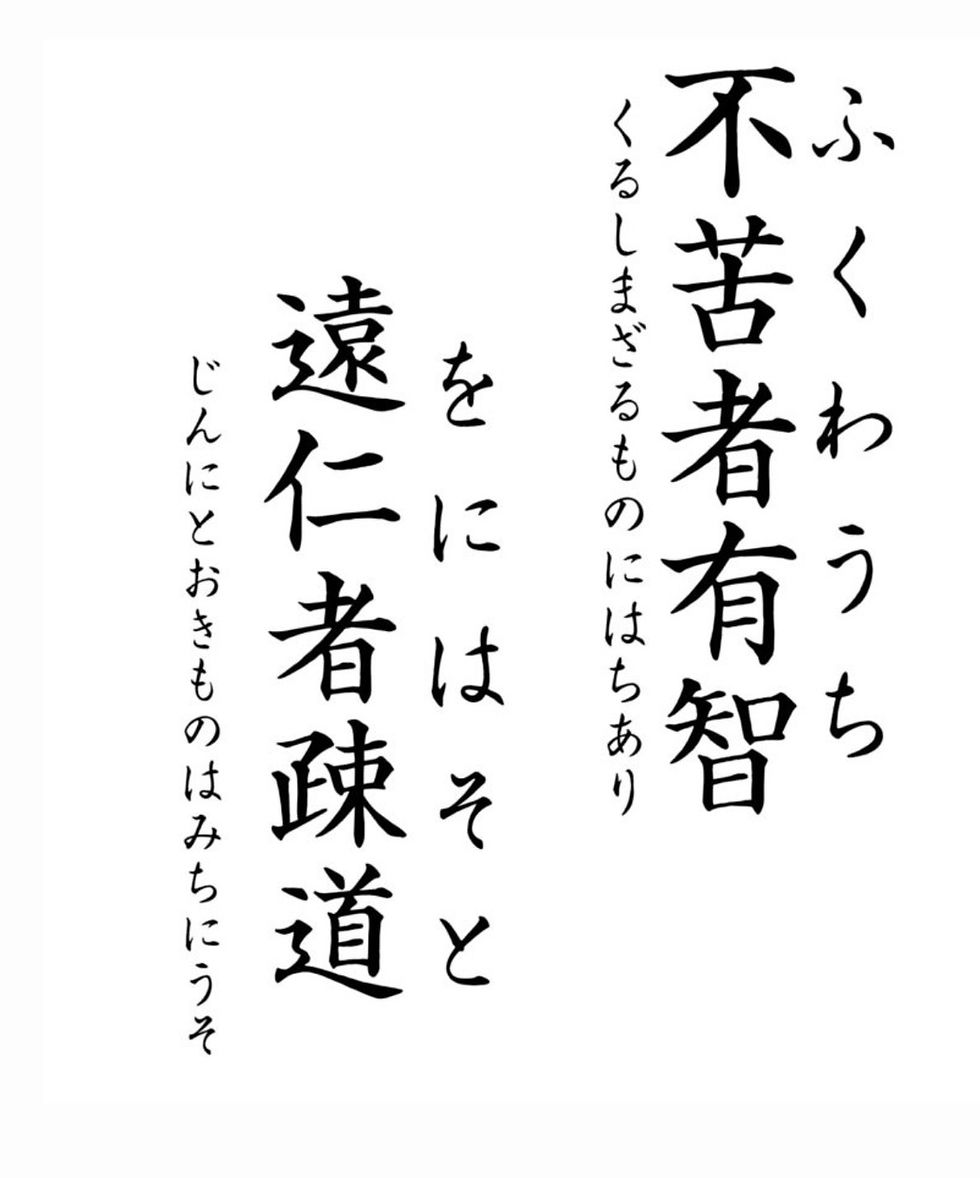 ふくわうち
不苦者有智
くるしまざるものにはちあり
をにはそと
遠仁者疎道
じんにとおきものはみちにうそ